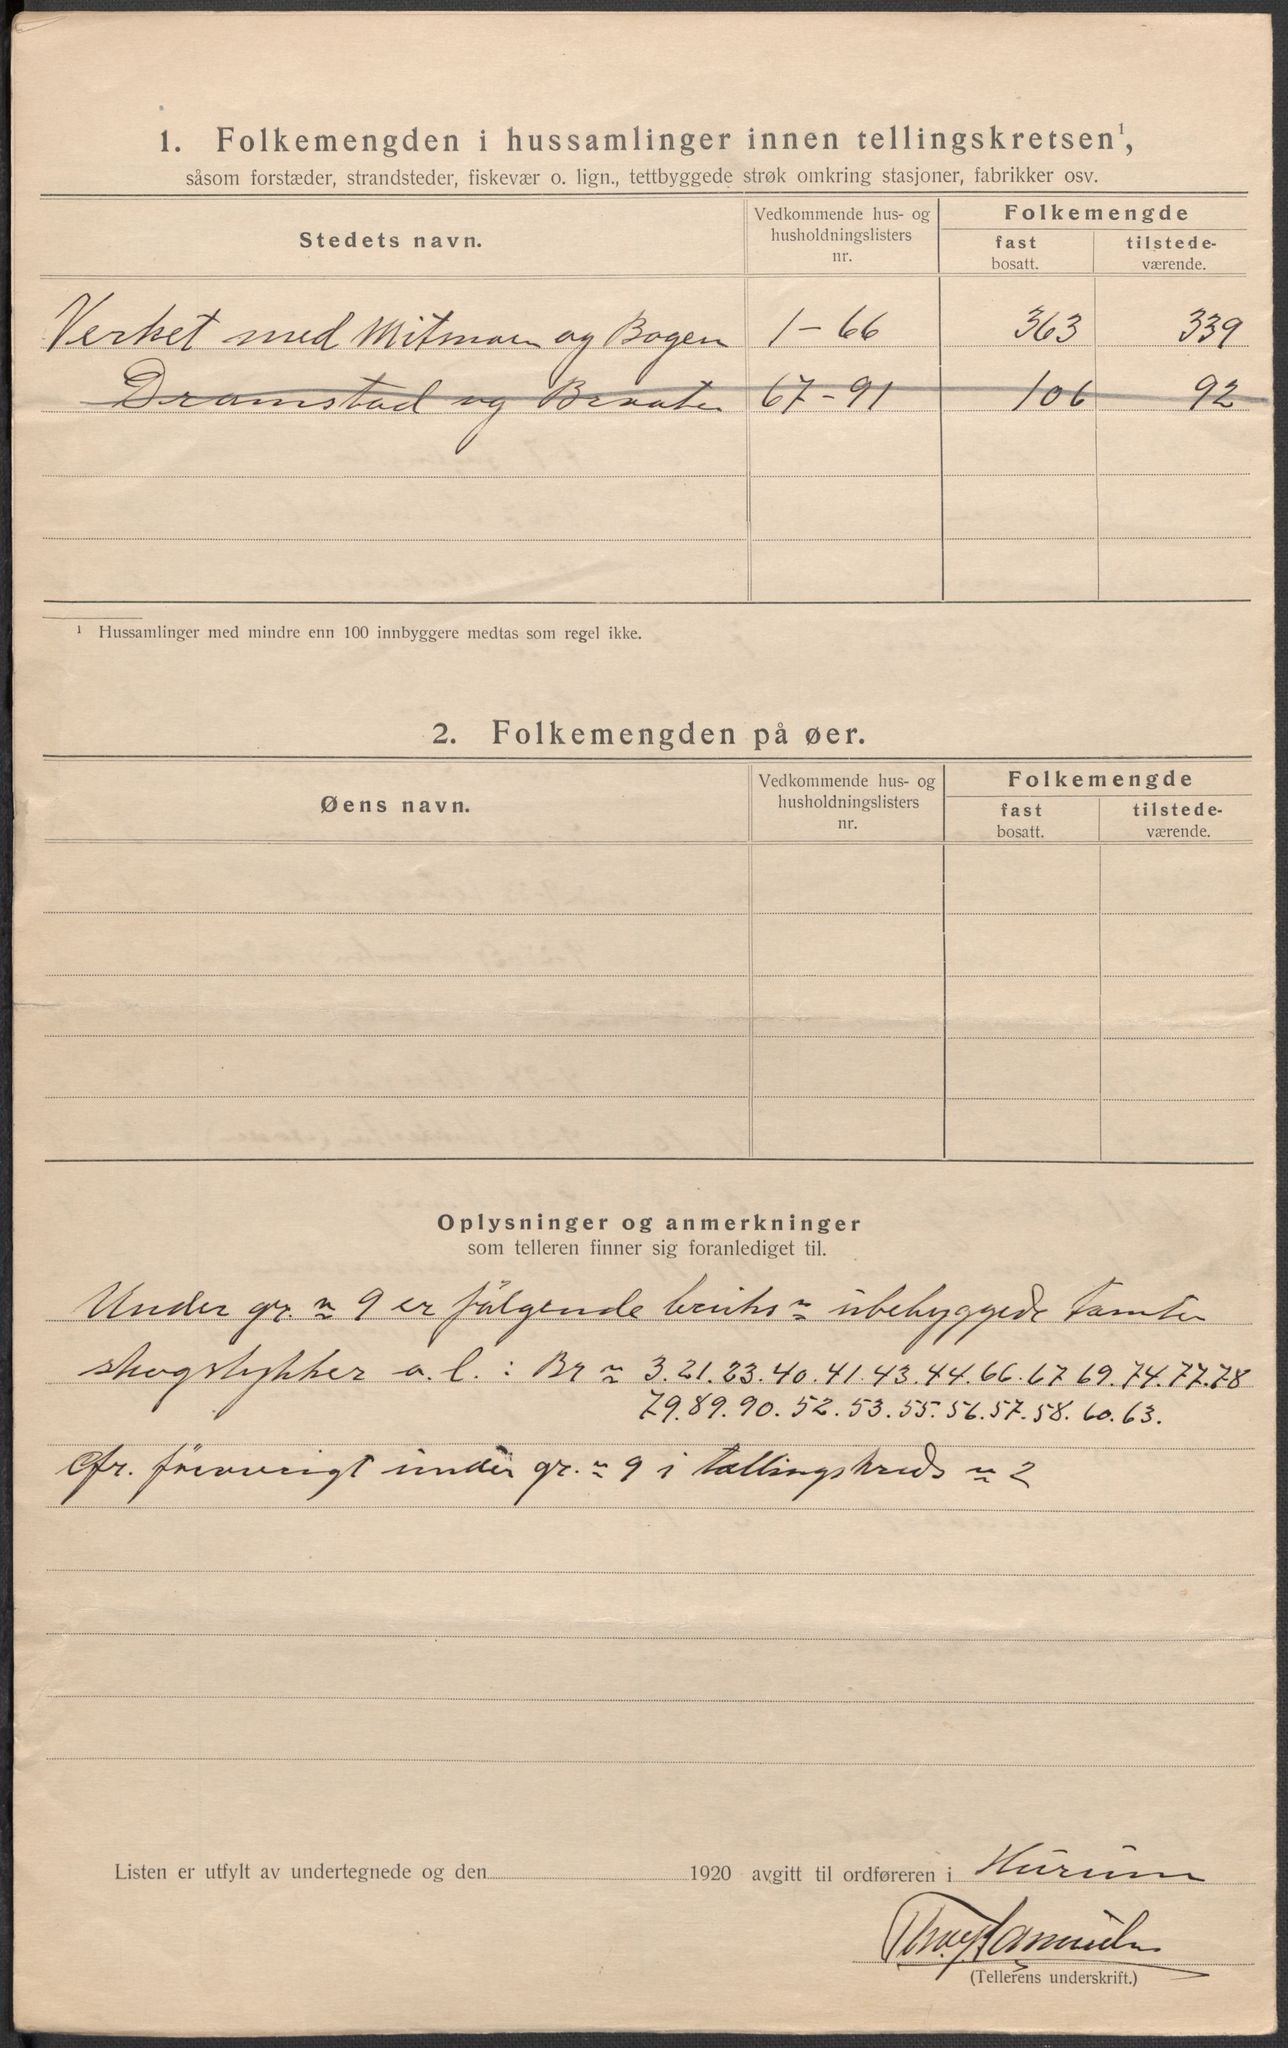 1. Folkemengden i hussamlinger innen tellingskretsen¹,
såsom forstæder, strandsteder, fiskevær o. lign., tettbyggede strøk omkring stasjoner, fabrikker osv.
Stedets navn. Vedkommende hus- og husholdningslisters nr. Folkemengde
fast bosatt. tilstede-værende.
Verket med Mitmoen og Bogen 1-66 363 339
Dramstad og Braaten 67-91 106 92
¹ Hussamlinger med mindre enn 100 innbyggere medtas som regel ikke.
2. Folkemengden på øer.
Øens navn. Vedkommende hus- og husholdningslisters nr. Folkemengde
fast bosatt. tilstede-værende.
Oplysninger og anmerkninger
som telleren finner sig foranlediget til.
Under gr. n 9 er følgende bruks n ubebyggede tomter
skogstykker o. l. : Br n 3. 21. 23. 40. 41. 43. 44. 66. 67 69. 74. 77. 78
79. 89. 90. 52. 53. 55. 56. 57. 58. 60. 63.
Cfr. forøvrigt under gr. n 9 i tællingskreds n 2
Listen er utfylt av undertegnede og den 1920 avgitt til ordføreren i Hurum
(Tellerens underskrift.)